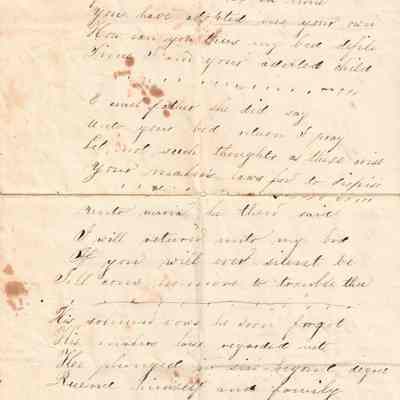 You have adopted me your own
How can you thus my bed defile
Since I am your adopted child
father she did say
Unto your bed return I pray
Let not such thoughts as these arise
Your makers laws for to despise
he then said
I will return unto my bed
If you will ever silent be
I'll come no more to trouble thee
His solemn vows he soon forgot
His makers laws regarded not
He plunged in sin
himself and family